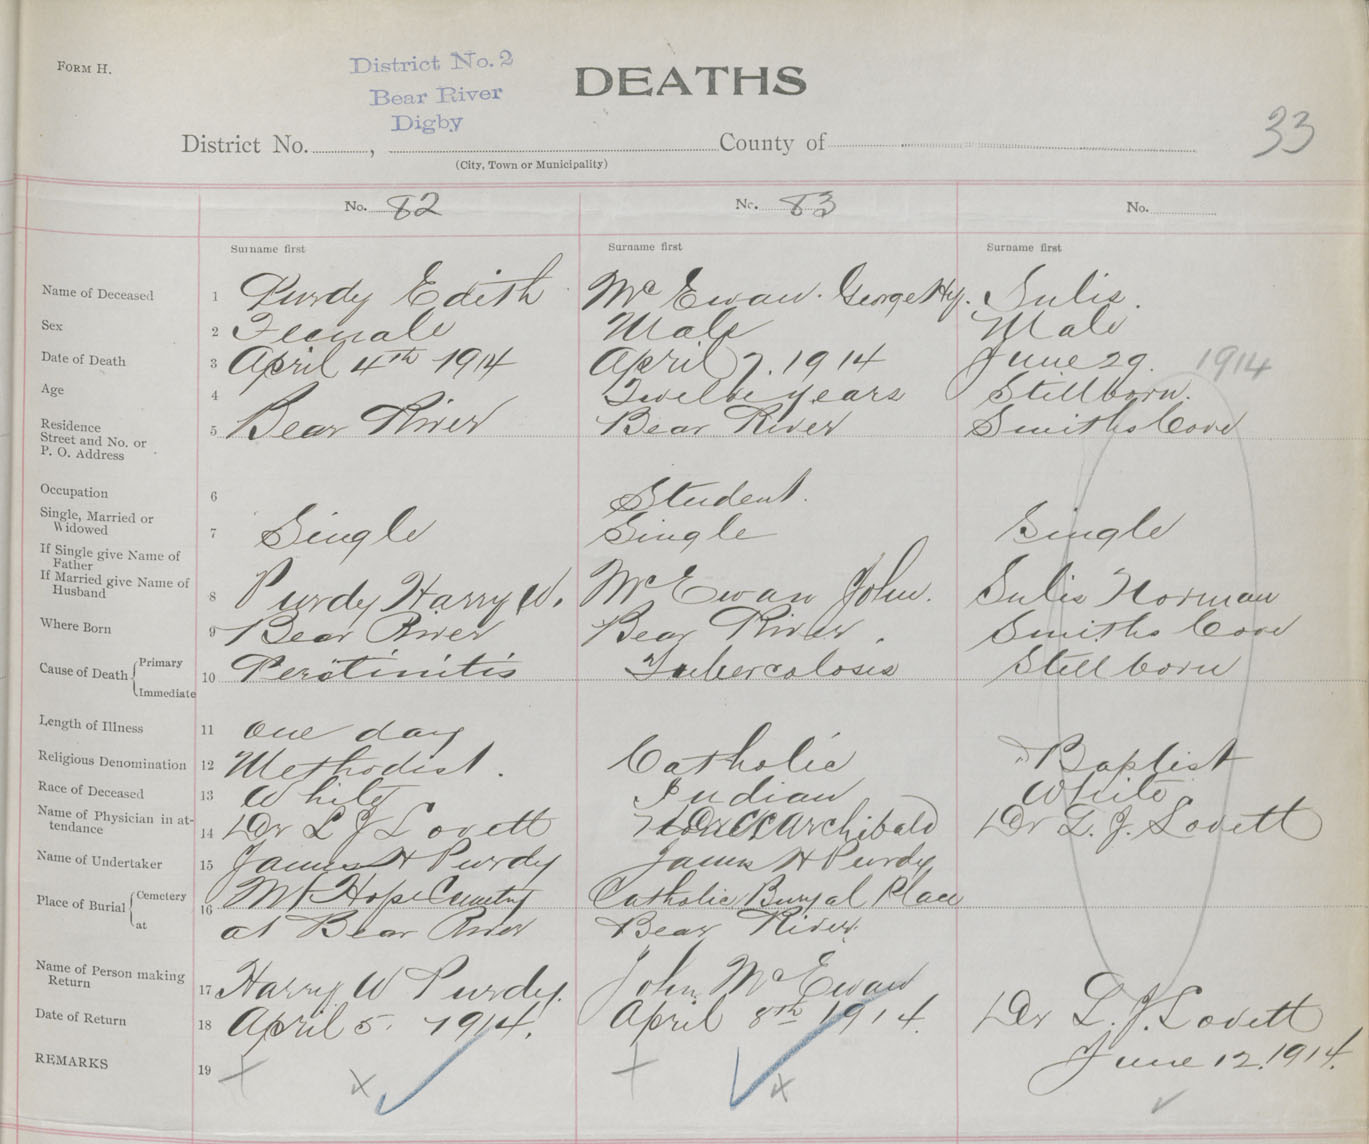 FORM H.
District No. 2
Bear River
Digby
DEATHS
33
District No. , County of
(City, Town or Municipality)
No. 82 No. 83 No.
Surname first Surname first Surname first
Name of Deceased 1 Purdy Edith Mc Ewan. George Hy. Sulis.
Sex 2 Female Male Male
Date of Death 3 April 4th 1914 April 7. 1914 June 29. 1914
Age 4 Twelve years Stillborn.
Residence
Street and No. or
P. O. Address 5 Bear River Bear River Smiths Cove
Occupation 6 Student.
Single, Married or
Widowed 7 Single Single Single
If Single give Name of
Father
If Married give Name of
Husband 8 Purdy Harry W. Mc Ewan John. Sulis Norman
Where Born 9 Bear River Bear River. Smiths Cove
Cause of Death Primary
Immediate 10 Peritinitis Tubercolosis Stillborn
Length of Illness 11 one day
Religious Denomination 12 Methodist. Catholic Baptist
Race of Deceased 13 White Indian White
Name of Physician in at-
tendance 14 Dr L J Lovett Dr Archibald Dr L. J. Lovett
Name of Undertaker 15 James H Purdy James H Purdy
Place of Burial Cemetery
at 16 Mt Hope Cemetry Catholic Buryal Place
at Bear River Bear River.
Name of Person making
Return 17 Harry W Purdy. John Mc Ewan Dr L. J. Lovett
Date of Return 18 April 5. 1914. April 8th 1914. June 12. 1914.
REMARKS 19